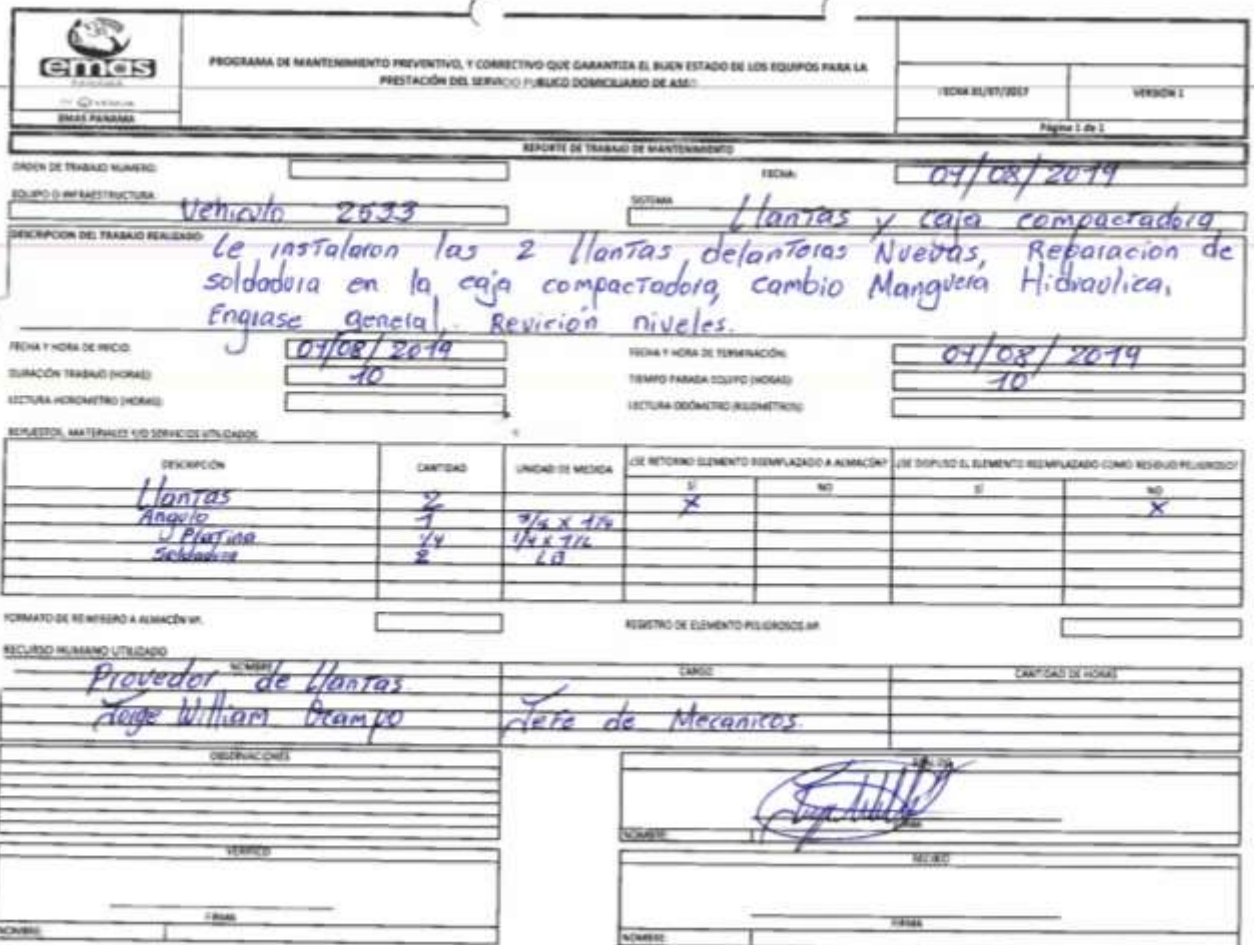 emas
EMAS PANAMA
PROGRAMA DE MANTENIMIENTO PREVENTIVO, Y CORRECTIVO QUE GARANTIZA EL BUEN ESTADO DE LOS EQUIPOS PARA LA
PRESTACIÓN DEL SERVICIO PUBLICO DOMICILIARIO DE ASEO
FECHA 01/07/2017 VERSION 1
Página 1 de 1
REPORTE DE TRABAJO DE MANTENIMIENTO
ORDEN DE TRABAJO NUMERO: FECHA: 01/08/2019
EQUIPO O INFRAESTRUCTURA Vehiculo 2533 SISTEMA Llantas y caja compactadora
DESCRIPCION DEL TRABAJO REALIZADO: Le instalaron las 2 llantas delanteras Nuevas, Reparacion de
soldadura en la caja compactadora, cambio Manguera Hidraulica,
Engrase general. Revición niveles.
FECHA Y HORA DE INICIO: 01/08/2019 FECHA Y HORA DE TERMINACIÓN: 01/08/2019
DURACIÓN TRABAJO (HORAS): 10 TIEMPO PARADA EQUIPO (HORAS): 10
LECTURA HOROMETRO (HORAS): LECTURA ODÓMETRO (KILOMETROS):
REPUESTOS, MATERIALES Y/O SERVICIOS UTILIZADOS
DESCRIPCIÓN CANTIDAD UNIDAD DE MEDIDA ¿SE RETORNO ELEMENTO REEMPLAZADO A ALMACÉN? ¿SE DISPUSO EL ELEMENTO REEMPLAZADO COMO RESIDUO PELIGROSO?
SÍ NO SÍ NO
Llantas 2 X X
Angulo 1
y Platina 1/4
Soldadura 2 LB
FORMATO DE REINGRESO A ALMACÉN Nº. REGISTRO DE ELEMENTO PELIGROSOS Nº
RECURSO HUMANO UTILIZADO
NOMBRE CARGO CANTIDAD DE HORAS
Provedor de Llantas
Jorge William Ocampo Jefe de Mecanicos.
OBSERVACIONES
FIRMA
NOMBRE:
VERIFICO RECIBIO
FIRMA FIRMA
NOMBRE: NOMBRE: